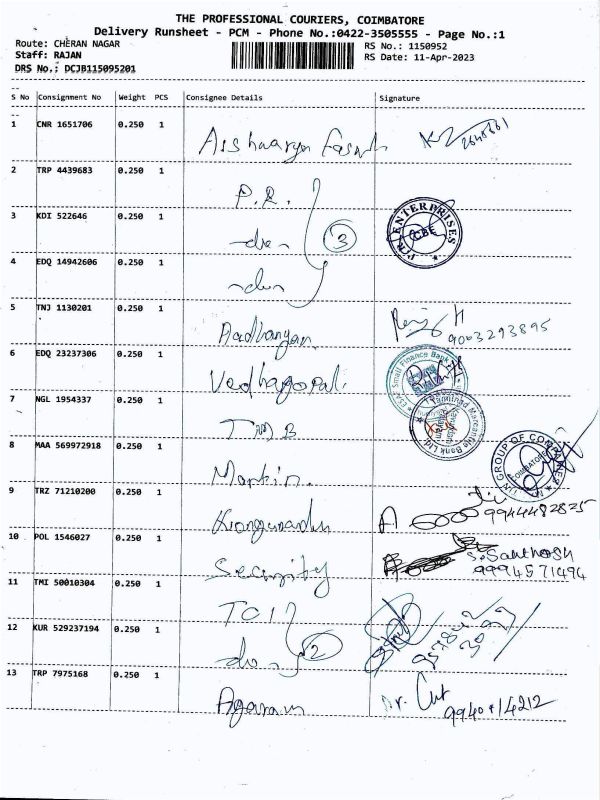 THE PROFESSIONAL COURIERS, COIMBATORE
Delivery Runsheet - PCM - Phone No.:0422-3505555 - Page No.:1
Route: CHERAN NAGAR RS No.: 1150952
Staff: RAJAN RS Date: 11-Apr-2023
DRS No.: DCJB115095201
S No Consignment No Weight PCS Consignee Details Signature
1 CNR 1651706 0.250 1
2 TRP 4439683 0.250 1 P.R.
3 KDI 522646 0.250 1 -do- 3 ENTERPRISES CBE
4 EDQ 14942606 0.250 1 -do-
5 TNJ 1130201 0.250 1 9003293895
6 EDQ 23237306 0.250 1 Vedhagopal. Small Finance Bank
7 NGL 1954337 0.250 1 TMB Tamilnad Mercantile Bank Ltd
8 MAA 569972918 0.250 1 Martin. GROUP OF COMPANIES COIMBATORE
9 TRZ 71210200 0.250 1 9944482825
10 POL 1546027 0.250 1 Security S. Santhosh
9994571494
11 TMI 50010304 0.250 1 TCI
12 KUR 529237194 0.250 1 -do- 2
13 TRP 7975168 0.250 1 Agaram